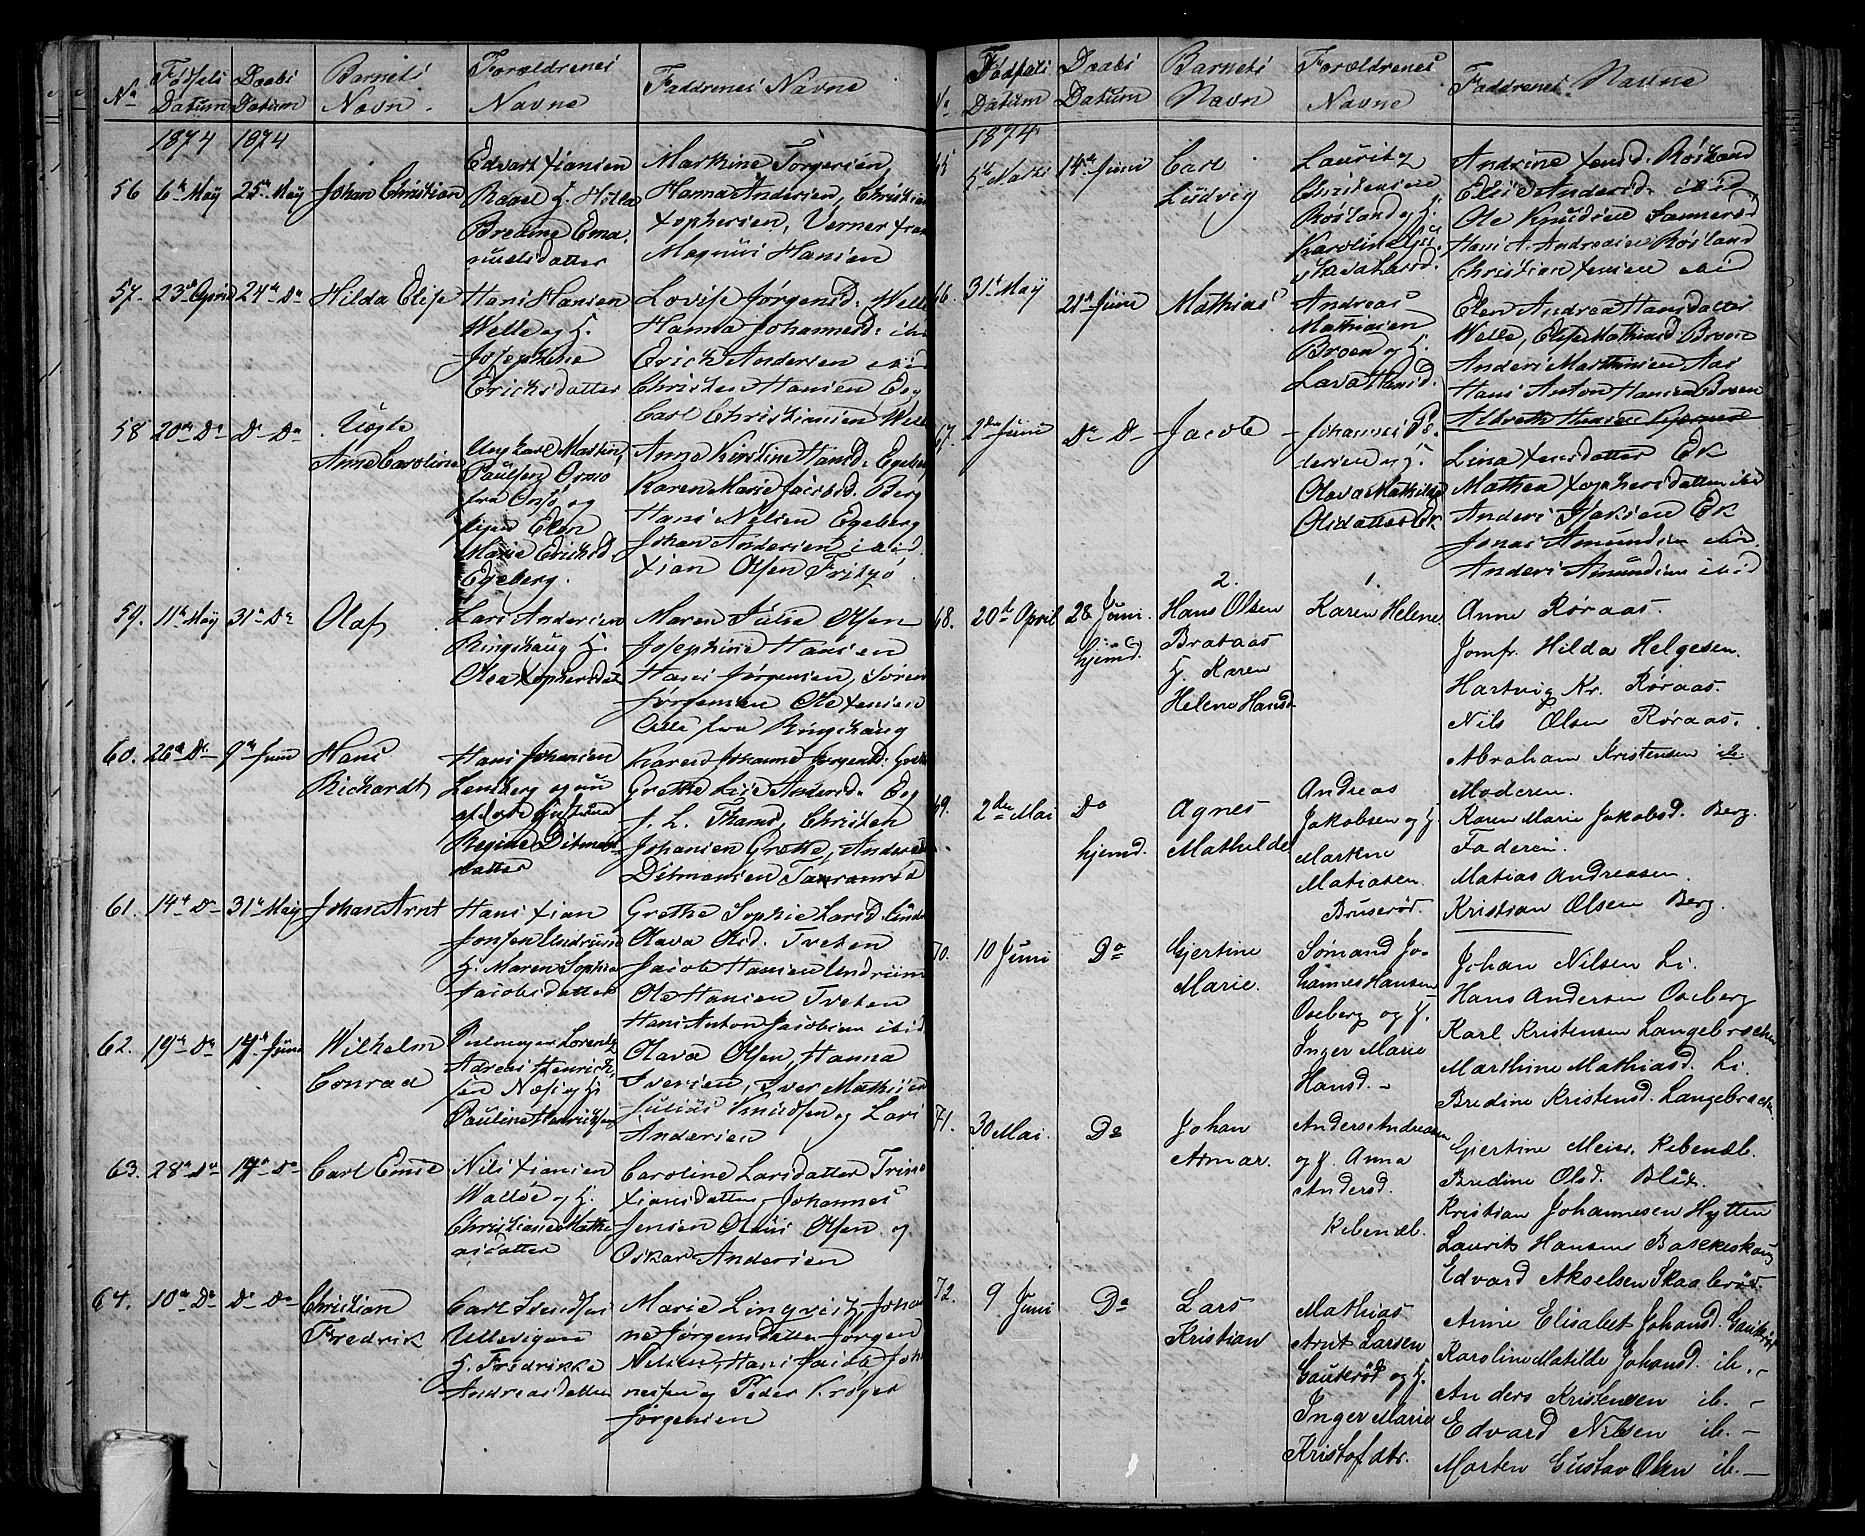 No Fødsels Datum Daabs Datum Barnets Navn. Forældrenes Navne Faddrenes Navne
1874 1874
56 6te May 25de May Johan Christian
Edvart Xiansen
Hølke
Bredine Ema,
nuelsdatter
Marthine Torgersen,
Hanna Andersen, Christ
tophersen, Verner Xian
Magnus Hansen
57. 23de April 24de Do Hilda Elise
Hans Hansen
Welle og H.
Josephine
Ericksdatter
Lovise Jørgensd: Welle
Hanna Johannesd: ibid
Erick Andersen ibid
Christen Hansen Eeg
Carl Christiansen Welle
58 20de Do Do Do Uægte
Anne Caroline
Ungkarl Martin,
Paulsen
fra og
pigen Elen
Marie Ericksd
Egeberg.
Anne Kirstine Hansd. Egeberg
Karen Marie Jacobsd. Berg
Hans Nilsen Egeberg
Johan Andersen, ibid.
Xian Olsen Fritzø
59. 11te May 31te Do Olaf
Lars Andersen
Ringshaug H.
Olea Xophersdat
Maren Julse Olsen
Josephine Hansen
Hans Jørgensen, Søren
Jørgensen Ole Jensen
Alle fra Ringshaug
60. 26de Do 9de Juni Hans
Richardt
Hans Johansen
Lensberg og
Regine Ditmans
datter
Karen Johanne Jørgensd:
Grethe Lise Andersd. Eeg
J. L. Thansd, Christen
Johansen Grette, Anders
Ditmansen Tanranrød
61. 14de Do 31te May Johan Arnt
Hans Xian
Jonsen Undrum
H. Maren Sophie
Jacobsdatter
Grethe Sophie Larsd. Undr
Olava Olsd. Tveten
Jacob Hansen Undrum
Ole Hansen Tveten
Hans Anton Jacobsen ibid
62. 19de Do 14de Juni Wilhelm
Conrad
Lorentz
Adreas Henrick,
sen Næs og H.
Pauline Henricksen
Olava Olsen, Hanna
Iversen, Iver Mathisen
Julius Knudsen og Lars
Andersen
63. 28de Do 14de Do Carl Emil
Nils Xiansen
Walløe og H.
Christiane Mathi
asdatter
Caroline Larsdatter Trine
Xiansdatter, Johannes
Jensen Olaus Olsen og
Oskar Andersen
64. 10de Do Do Do Christian
Fredrik
Carl Svendsen
Ullevigen
H. Fredrikke
Andreasdatter
Marie Lingvist, Joha
ne Jørgensdatter Jørgen
Nilsen, Hans Jacob Joh
nesen og Peder Krøger
Jørgensen
No. Fødsels Datum Daabs Datum Barnets Navn Forældrenes Navne Faddrenes Navne
1874
65 5te Marts 14de Juni Carl
Ludvig
Lauritz
Christensen
Røsland og H.
Karoline
Larsd.
Andrine Jensd. Røsland
Elise Andersd. ibid
Ole Knudsen Sannerød
Hans A. Andresen Røsland
Christian Jensen ibid
66. 31te May 21de Juni Mathias
Andreas
Mathiasen
Broen og H.
Lava Hansd.
Elen Andrea Hansdatter
Welle, Elise Mathiasd. Broen
Anders Marthinsen Aas
Hans Anton Hansen Broen
Albreth Hansen
67. 2den Juni Do Do Jacob
Johannes Pe,
dersen og H.
Olava Mathilde
Olsdatter Ek
Lina Jensdatter Ek
Mathea Xophersdatter ibid
Anders Isaksen Ek
Jonas Amundsen ibid
Anders Amundsen ibid
68. 20de April 28 Juni.
hjemd.
2.
Hans Olsen
Brataas
H. Karen
Helene Hansd
1.
Karen Helene
Anne Røraas.
Jomfr. Hilda Helgesen.
Hartvig Kr. Røraas.
Nils Olsen Røraas.
Abraham Kristensen ib.
69. 2den Mai Do
hjemd.
Agnes
Mathilde
Andreas
Jakobsen og H.
Martine
Matiasen
Bruserød.
Moderen.
Karen Marie Jakobsd. Berg.
Faderen.
Matias Andreasen.
Kristian Olsen Berg.
70. 10 Juni Do Gjertine
Marie.
Sømand Jo-
hannes Hansen
Oseberg og H.
Inger Marie
Hansd. -
Johan Nilsen Li.
Hans Andersen Oseberg
Karl Kristensen Langebrækken
Marthine Mathiasd. Li.
Bredine Kristensd. Langebrække
71. 30 Mai. Do Johan
Armar.
Anders Andreasen
og H. Anna
Andersd.
Rebendb.
Gjertine Meier, Rebendb.
Bredine Olsd. Blix.
Kristian Johannesen Hytten
Laurits Hansen Bakkeskaug
Edvard Akselsen Skaalerød.
72. 9 Juni Do Lars
Kristian
Mathias
Arnt Larsen
Gauterød og H.
Inger Marie
Kristofdtr.
Anne Elisabet Johansd. Gauterød
Karoline Matilde Johansd. ib. -
Anders Kristensen ib. -
Edvard Nilsen ib. -
Morten Gustav Olsen ib. -